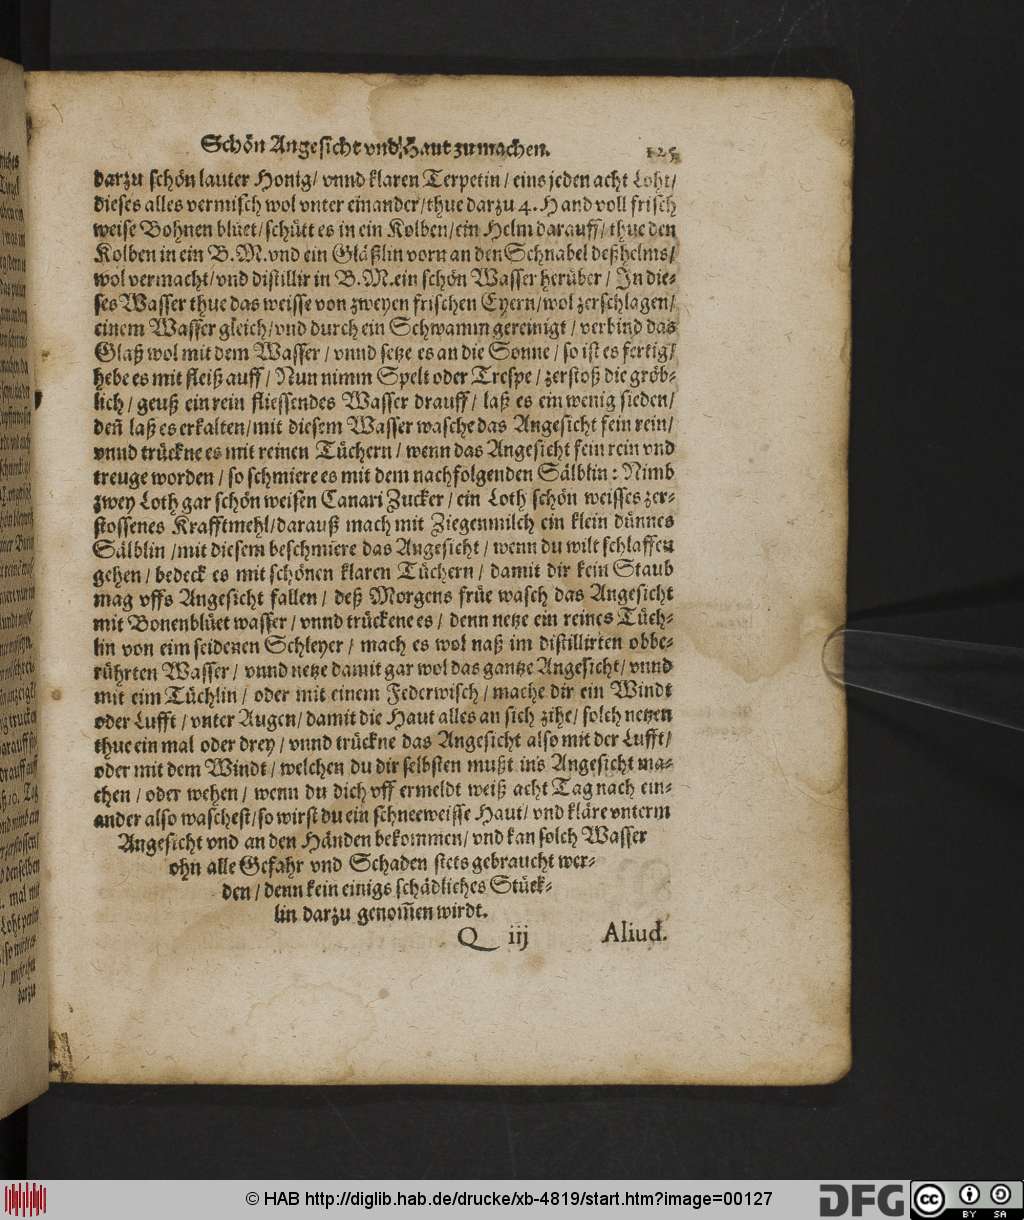 Schön Angesicht vnd Haut zumachen. 125
darzu schön lauter Honig/ vnnd klaren Terpetin/ eins jeden acht Loht/
dieses alles vermisch wol vnter einander/ thue darzu 4. Hand voll frisch
weise Bohnen blüet/ schütt es in ein Kolben/ ein Helm darauff/ thue den
Kolben in ein B.M. vnd ein Gläßlin vorn an den Schnabel deß helms/
wol vermacht/ vnd distillir in B.M. ein schön Wasser herüber/ In die-
ses Wasser thue das weisse von zweyen frischen Eyern/ wol zerschlagen/
einem Wasser gleich/ vnd durch ein Schwamm gereinigt/ verbind das
Glaß wol mit dem Wasser/ vnnd setze es an die Sonne/ so ist es fertig/
hebe es mit fleiß auff/ Nun nimm Spelt oder Trespe/ zerstoß die gröb-
lich/ geuß ein rein fliessendes Wasser drauff/ laß es ein wenig sieden/
deñ laß es erkalten/ mit diesem Wasser wasche das Angesicht fein rein/
vnnd trückne es mit reinen Tüchern/ wenn das Angesicht fein rein vnd
treuge worden/ so schmiere es mit dem nachfolgenden Sälblin: Nimb
zwey Loth gar schön weisen Canari Zucker/ ein Loth schön weisses zer-
stossenes Krafftmehl/ darauß mach mit Ziegenmilch ein klein dünnes
Sälblin/ mit diesem beschmiere das Angesicht/ wenn du wilt schlaffen
gehen/ bedeck es mit schönen klaren Tüchern/ damit dir kein Staub
mag vffs Angesicht fallen/ deß Morgens früe wasch das Angesicht
mit Bonenblüet wasser/ vnnd trückene es/ denn netze ein reines Tüch-
lin von eim seidenen Schleyer/ mach es wol naß im distillirten obbe-
rührten Wasser/ vnnd netze damit gar wol das gantze Angesicht/ vnnd
mit eim Tüchlin/ oder mit einem Federwisch/ mache dir ein Windt
oder Lufft/ vnter Augen/ damit die Haut alles an sich zihe/ solch netzen
thue ein mal oder drey/ vnnd trückne das Angesicht also mit der Lufft/
oder mit dem Windt/ welchen du dir selbsten mußt ins Angesicht ma-
chen/ oder wehen/ wenn du dich vff ermeldt weiß acht Tag nach ein-
ander also waschest/ so wirst du ein schneeweisse Haut/ vnd kläre vnterm
Angesicht vnd an den Händen bekommen/ vnd kan solch Wasser
ohn alle Gefahr vnd Schaden stets gebraucht wer-
den/ denn kein einigs schädliches Stück-
lin darzu genom̃en wirdt.
Q iij Aliud.
© HAB http://diglib.hab.de/drucke/xb-4819/start.htm?image=00127
DFG
cc BY SA